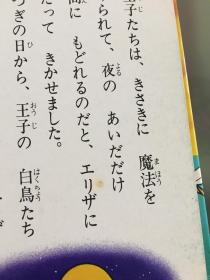 王子たちは、きさきに 魔法を
られて、夜の あいだだけ
間に もどれるのだと、エリザに
たって きかせました。
つぎの日から、王子の 白鳥たち